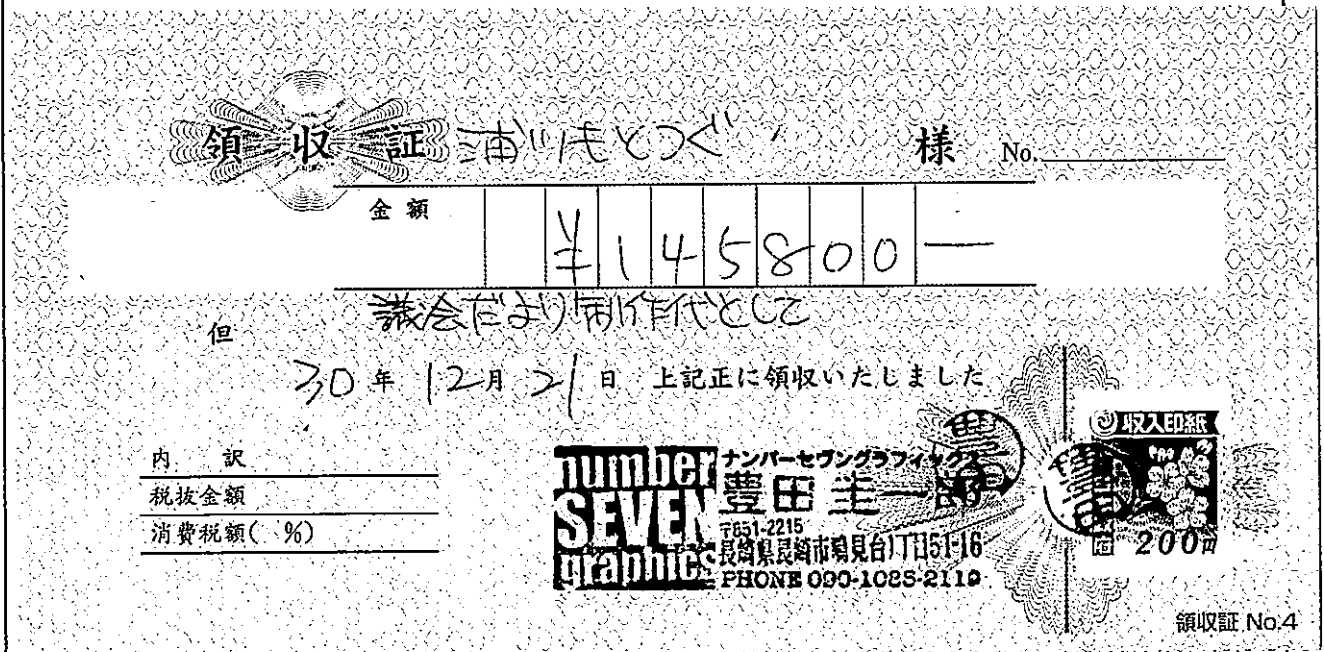 領収証 浦川もとつぐ 様 No.
金額 ¥145800—
但 議会だより制作代として
30年 12月 21日 上記正に領収いたしました
内訳
税抜金額
消費税額( %)
number SEVEN graphics
ナンバーセヴングラフィックス
豊田圭一郎
〒851-2215
長崎県長崎市鳴見台1丁目51-16
PHONE 090-1085-2110
豊田
収入印紙
200円
領収証 No.4